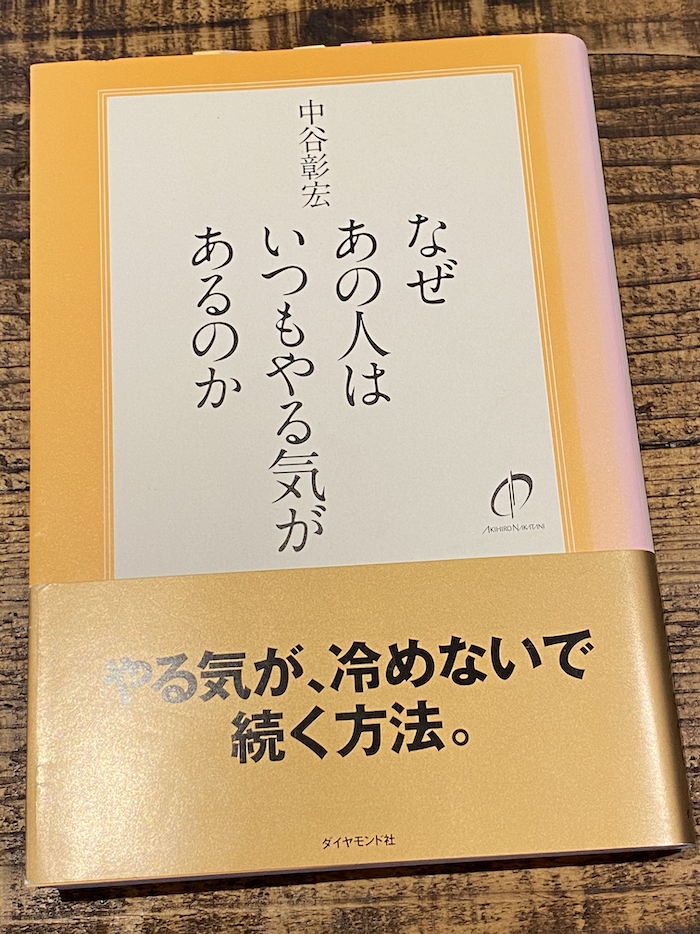 中谷彰宏
なぜ
あの人は
いつもやる気が
あるのか
AKIHIRO NAKATANI
やる気が、冷めないで
続く方法。
ダイヤモンド社